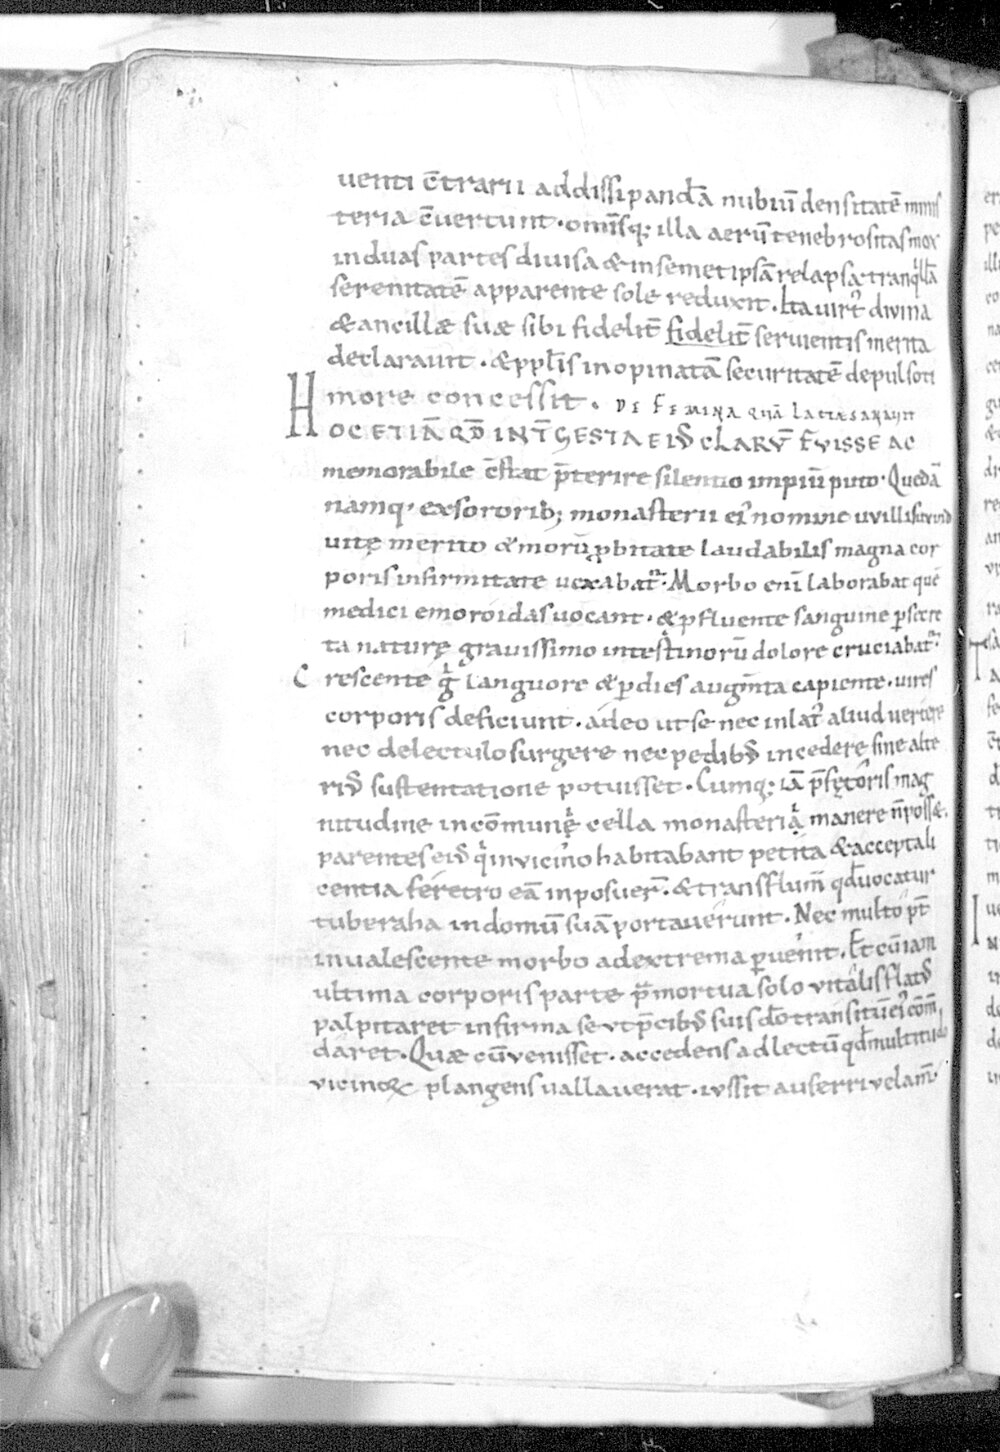 uenti c̄trarii addissipandā nubiū densitatē minis
teria c̄uertunt · omīsq; illa aerū tenebrositas mox
in duas partes diuisa & in semet ipsā relapsa tranqͥllā
serenitatē apparente sole reduxit. Ita uirt᷒ diuina
& ancillæ suæ sibi fidelit̄ fidelit̄ seruientis merita
declarauit · & ppl̄is inopinatā securitatē depulso ti
more concessit. DE FEMINA quā lacte sanauit
HOC ETIĀ QD̄ INT̄ GESTA EID̄ CLARŪ FUISSE AC
memorabile c̄stat p̄terire silentio impiū puto · Quedā
namq· ex sororib; monasterii ei᷒ nomine uuillisuuind
uitę merito & morū ꝓbitate laudabilis magna cor
poris infirmitate uexabat᷑ · Morbo eni laborabat quē
medici emoroidas uocant · & ꝓfluente sanguine ꝑ secre
ta naturę grauissimo intestinorū dolore cruciabat᷑
Crescente gͥ languore & ꝑ dies augm̄ta capiente · uires
corporis deficiunt · adeo ut se nec in lat᷒ aliud uertere
nec de lectulo surgere nec pedib᷒ incedere sine alte
ri᷒ sustentatione potuisset · Cumq; iā p̄ fętoris mag
nitudine in cōmunę cella monasteriͣ manere n̄ posset ·
parentes eid̄ qͥ in uicino habitabant petita & accepta li
centia feretro eā inposuer᷑ · & trans flum̄ qd̄ uocatur
tuberaha in domū suā portauerunt · Nec multo p᷒t
inualescente morbo ad extrema ꝑuenit · Et cū iam
ultima corporis parte p̄mortua solo uitalis flat᷒
palpitaret infirma se ut p̄cib᷒ suis d̄o transitū ei᷒ cōm̄
daret · Quæ cū uenisset · accedens ad lectū qd̄ multitudo
uicinoꝝ plangens uallauerat · iussit auferri uelam̄